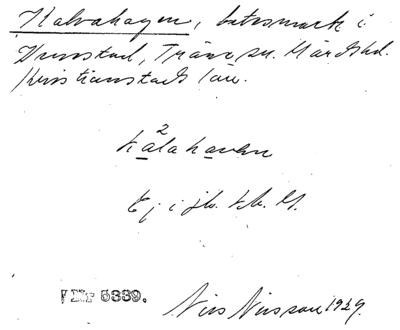 Kalvahagen, betesmark i
Drinstad, Träne sn. Gärds hd.
Kristianstads län.
ka²lahaven
Ej i jb. kb. G.
5339.
Nils Nilsson 1929.